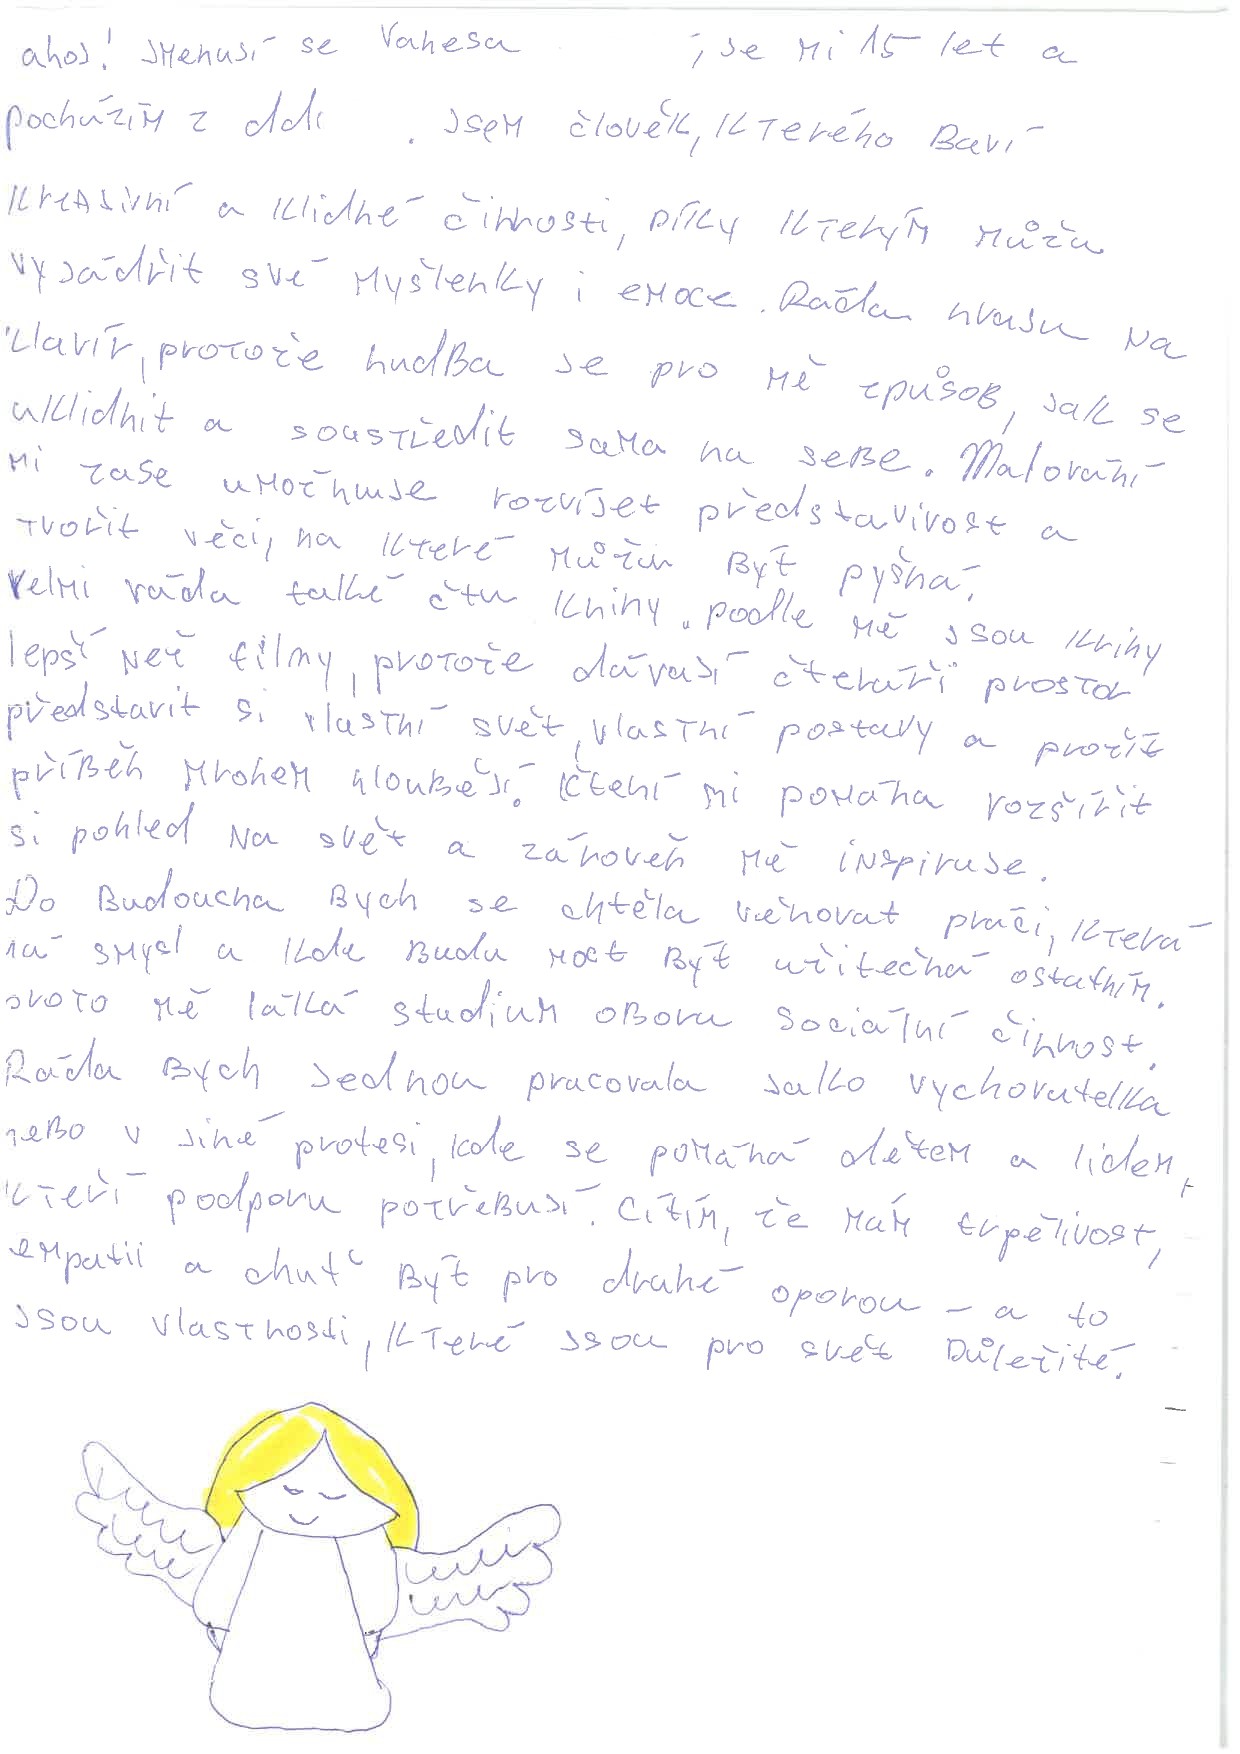 ahoj! Jmenuji se Vanesa , je mi 15 let a
pocházím z ddi . Jsem člověk, kterého baví
kreativní a klidné činnosti, díky kterým můžu
vyjádřit své myšlenky i emoce. Ráda hraju na
klavír, protože hudba je pro mě způsob, jak se
uklidnit a soustředit sama na sebe. Malování
mi zase umožňuje rozvíjet představivost a
tvořit věci, na které můžu být pyšná.
Velmi ráda také čtu knihy. podle mě jsou knihy
lepší než filmy, protože dávají čtenáři prostor
představit si vlastní svět, vlastní postavy a prožít
příběh mnohem hlouběji. Čtení mi pomáhá rozšířit
si pohled na svět a zároveň mě inspiruje.
Do budoucna bych se chtěla věnovat práci, která
má smysl a kde budu moct být užitečná ostatním.
proto mě láká studium oboru sociální činnost.
Ráda bych jednou pracovala jako vychovatelka
nebo v jiné profesi, kde se pomáhá dětem a lidem,
kteří podporu potřebují. Cítím, že mám trpělivost,
empatii a chuť být pro druhé oporou – a to
jsou vlastnosti, které jsou pro svět důležité.